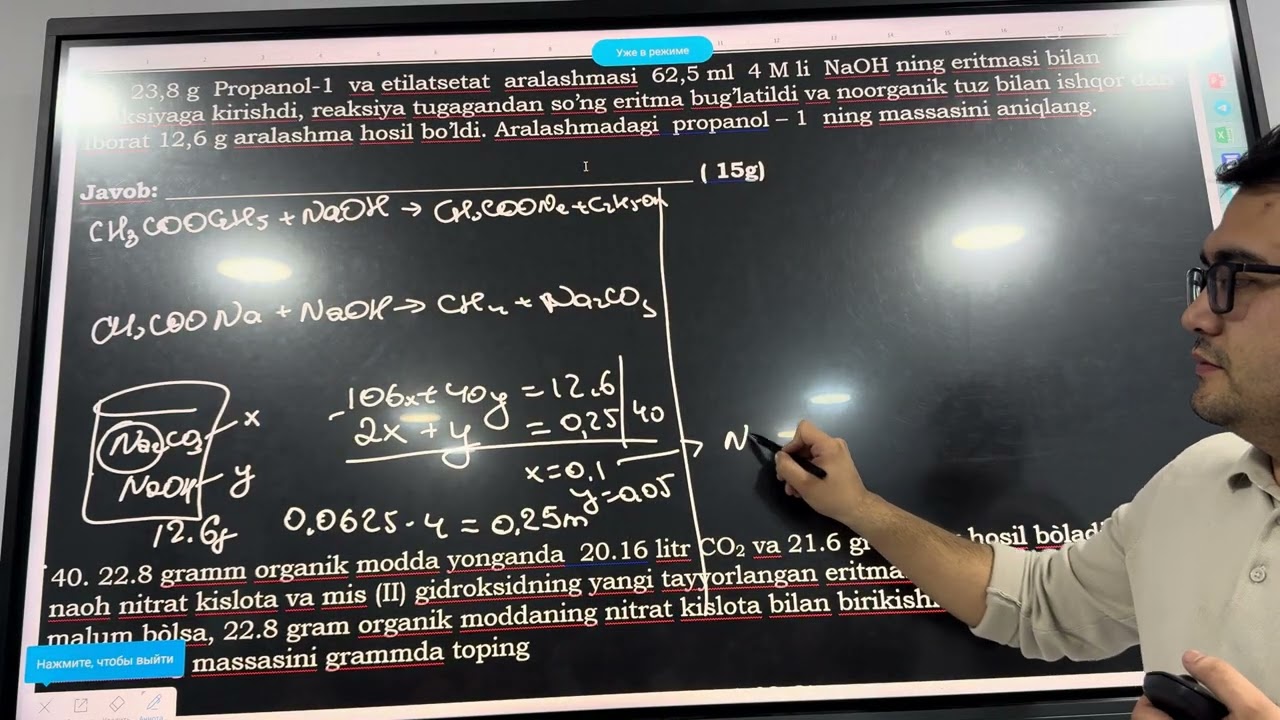 Уже в режиме
23,8 g Propanol-1 va etilatsetat aralashmasi 62,5 ml 4 M li NaOH ning eritmasi bilan
ksiyaga kirishdi, reaksiya tugagandan so'ng eritma bug'latildi va noorganik tuz bilan ishqor dan
iborat 12,6 g aralashma hosil bo'ldi. Aralashmadagi propanol – 1 ning massasini aniqlang.
Javob: ( 15g)
CH3COOC2H5 + NaOH → CH3COONa + C2H5OH
CH3COONa + NaOH → CH4 + Na2CO3
106x + 40y = 12.6
2x + y = 0,25 | 40
Na2CO3 x
NaOH y
x = 0,1
y = 0,05
12.6g
0.0625 · 4 = 0,25m
N
40. 22.8 gramm organik modda yonganda 20.16 litr CO2 va 21.6 hosil bòladi
naoh nitrat kislota va mis (II) gidroksidning yangi tayyorlangan
malum bòlsa, 22.8 gram organik moddaning nitrat kislota bilan
massasini grammda toping
Нажмите, чтобы выйти